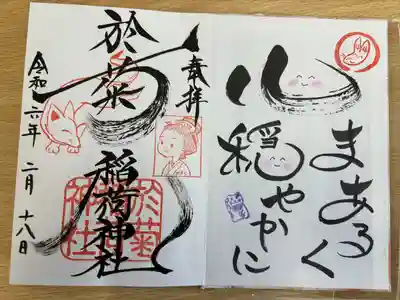 まあるく
心穏やかに
奉拝
於菊
稲荷神社
於菊
神社
令和六年二月十八日